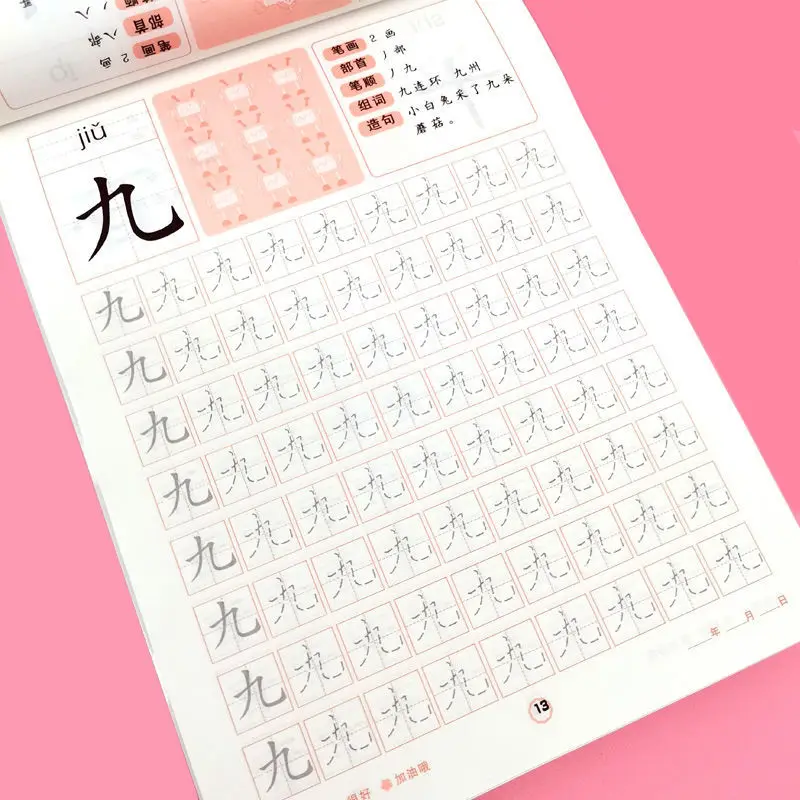 笔画 2 画
部首 八部
jiǔ
九
笔画 2 画
部首 丿部
笔顺 丿九
组词 九连环 九州
造句 小白兔采了九朵
蘑菇。
九九九九九九九九九
九九九九九九九九九
九九九九九九九九九
九九九九九九九九九
九九九九九九九九九
九九九九九九九九九
九九九九九九九九九
九九九九九九九九九
年 月 日
13
好 加油哦